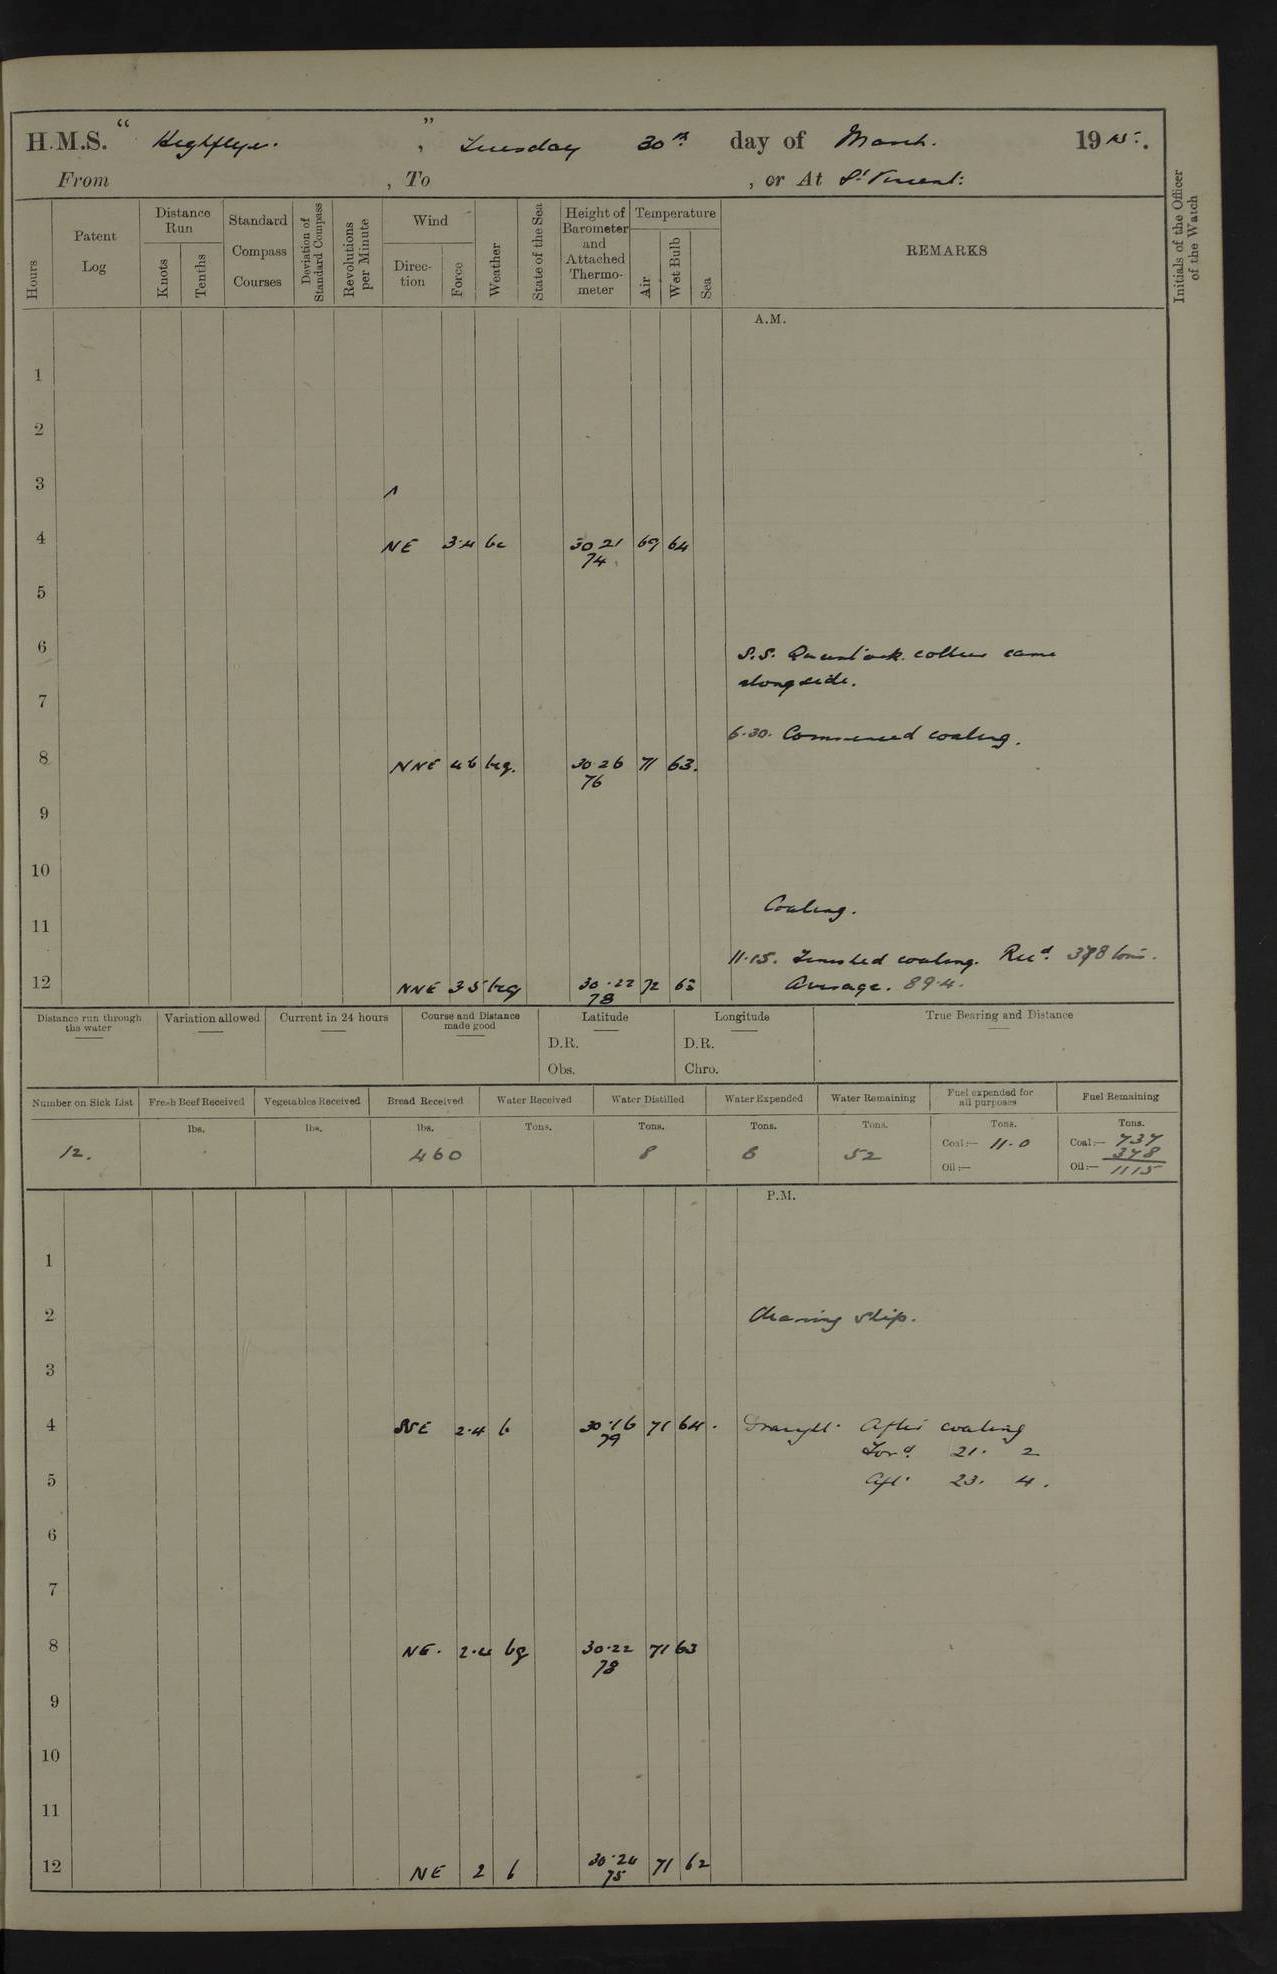 H.M.S. “ Highflyer. ” , Tuesday 30th day of March. 1915.
From , To , or At St Vincent.
Hours
Patent Log
Distance Run
Knots
Tenths
Standard Compass Courses
Deviation of Standard Compass
Revolutions per Minute
Wind
Direction
Force
Weather
State of the Sea
Height of Barometer and Attached Thermometer
Temperature
Air
Wet Bulb
Sea
REMARKS
Initials of the Officer of the Watch
A.M.
1
2
3
4 NE 3·4 bc 30 21 69 64
74
5
6 S.S. collier came
alongside.
7
6·30. Commenced coaling.
8 NNE 4 6 bcg. 30·26 71 63.
76
9
10
Coaling.
11
11·15. Finished coaling. Recd. 378 tons.
12 NNE 3 5 bcg 30·22 72 63 Average. 89·4.
78
Distance run through the water
Variation allowed
Current in 24 hours
Course and Distance made good
Latitude
D.R.
Obs.
Longitude
D.R.
Chro.
True Bearing and Distance
Number on Sick List
Fresh Beef Received
Vegetables Received
Bread Received
Water Received
Water Distilled
Water Expended
Water Remaining
Fuel expended for all purposes
Fuel Remaining
lbs. lbs. lbs. Tons. Tons. Tons. Tons. Tons. Tons.
12. 460 8 6 52 Coal:— 11·0 Coal:— 737
378
Oil:— Oil:— 1115
P.M.
1
2 Cleaning ship.
3
4 NE 2·4 b 30·16 71 64. Draught. After coaling
79
Ford. 21. 2
5 Aft. 23. 4.
6
7
8 NE. 2·4 bg 30·22 71 63
78
9
10
11
12 NE 2 b 30·24 71 62
75